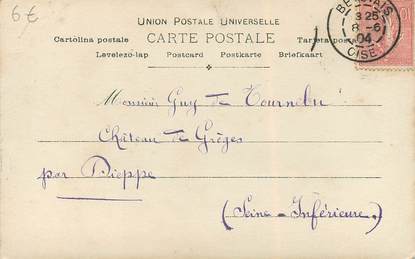 6€
UNION POSTALE UNIVERSELLE
CARTE POSTALE
Cartolina postale Tarjeta postal
Levelező-lap Postcard Postkarte Briefkaart
BEAUVAIS
3 25
8 - 6
04
OISE
Monsieur Guy de Tournebu
Château de Grèges
par Dieppe
(Seine-Inférieure)